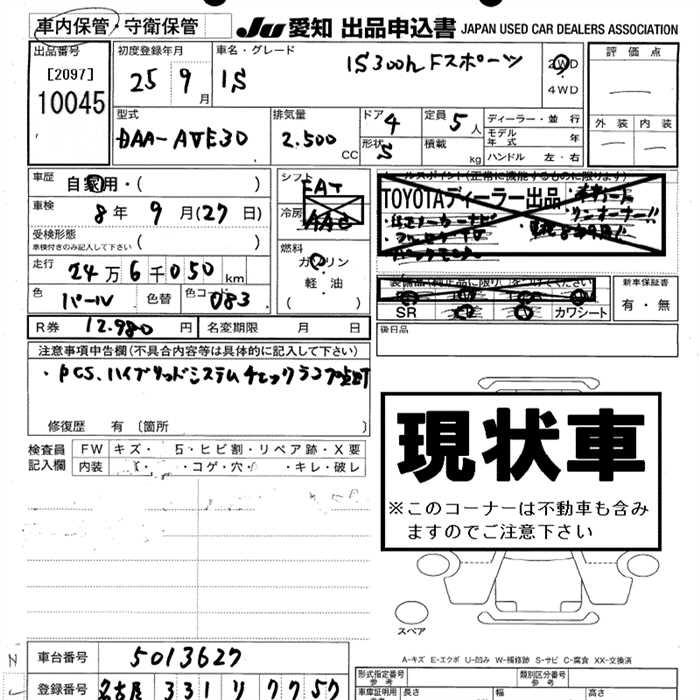 車内保管・守衛保管 JU 愛知 出品申込書 JAPAN USED CAR DEALERS ASSOCIATION
出品番号
[2097]
10045
初度登録年月
25 9月
車名・グレード
IS IS300h Fスポーツ
2WD
・
4WD
評価点
外装 内装
型式
DAA-AVE30
排気量
2.500 CC
ドア 4
形状 S
定員 5人
積載 kg
ディーラー・並行
モデル年式 年
ハンドル 左・右
車歴 自家用・( )
車検 8年9月(27日)
受検形態
車検付きのみ記入して下さい ( )
走行 24万6千050km
色 パール 色替 色コード 083
シフト FAT
冷房 AAC
燃料
ガソリン
・
軽油
( )
セールスポイント(正常に機能するものに限ります)
TOYOTAディーラー出品
装備品(純正品に限り)をつけてください
SR カワシート
新車保証書
有・無
R券 12.980円 名変期限 月 日
後日品
注意事項申告欄(不具合内容等は具体的に記入して下さい)
・PCS、ハイブリッドシステムチェックランプ点灯
修復歴 有〔箇所 〕
検査員
記入欄
FW キズ・ ・ヒビ割・リペア跡・X要
内装 ・コゲ・穴・ ・キレ・破レ
現状車
※このコーナーは不動車も含み
ますのでご注意下さい
スペア
A-キズ E-エクボ U-凹み W-補修跡 S-サビ C-腐食 XX-交換済
車台番号 5013627
登録番号 名古屋 331 リ 7757
形式指定番号 参考
類別区分番号 参考
車庫証明用 長さ 幅 高さ